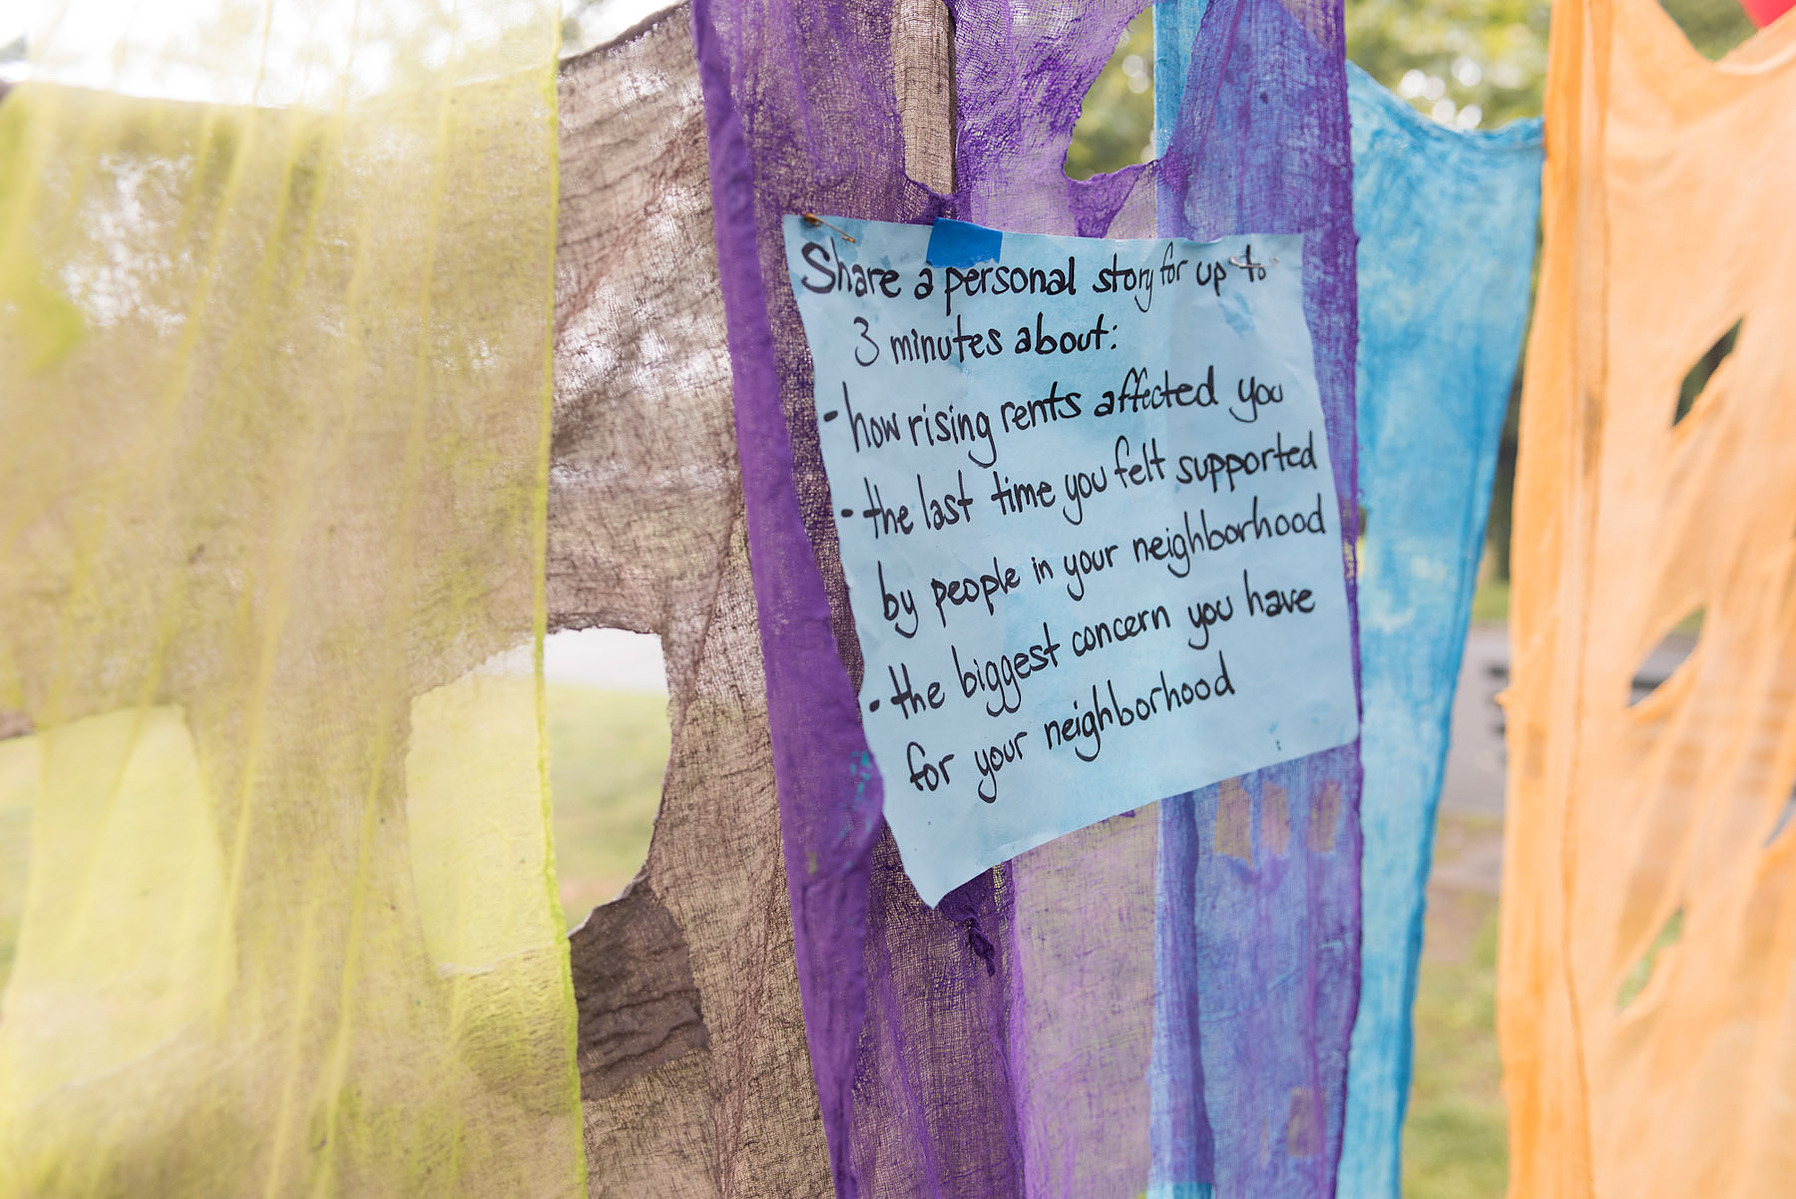 Share a personal story for up to
3 minutes about:
- how rising rents affected you
- the last time you felt supported
by people in your neighborhood
- the biggest concern you have
for your neighborhood